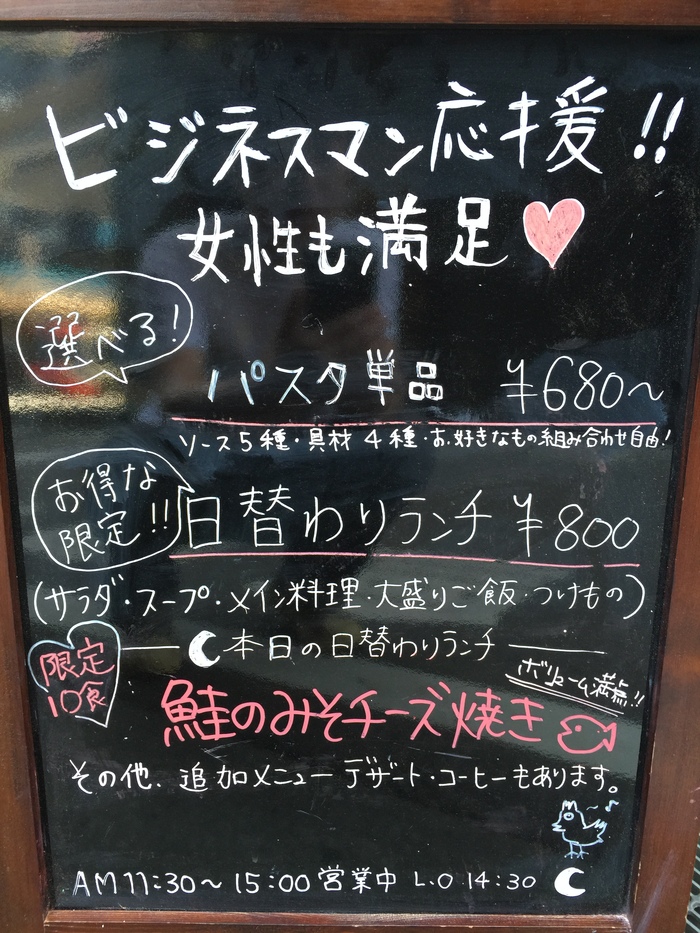 ビジネスマン応援!!
女性も満足
選べる!
パスタ単品 ¥680~
ソース5種・具材4種・お好きなもの組み合わせ自由!
お得な
限定!!
日替わりランチ ¥800
(サラダ・スープ・メイン料理・大盛りご飯・つけもの)
本日の日替わりランチ
限定
10食
ボリューム満点!!
鮭のみそチーズ焼き
その他、追加メニューデザート・コーヒーもあります。
AM11:30~15:00営業中 L.O 14:30